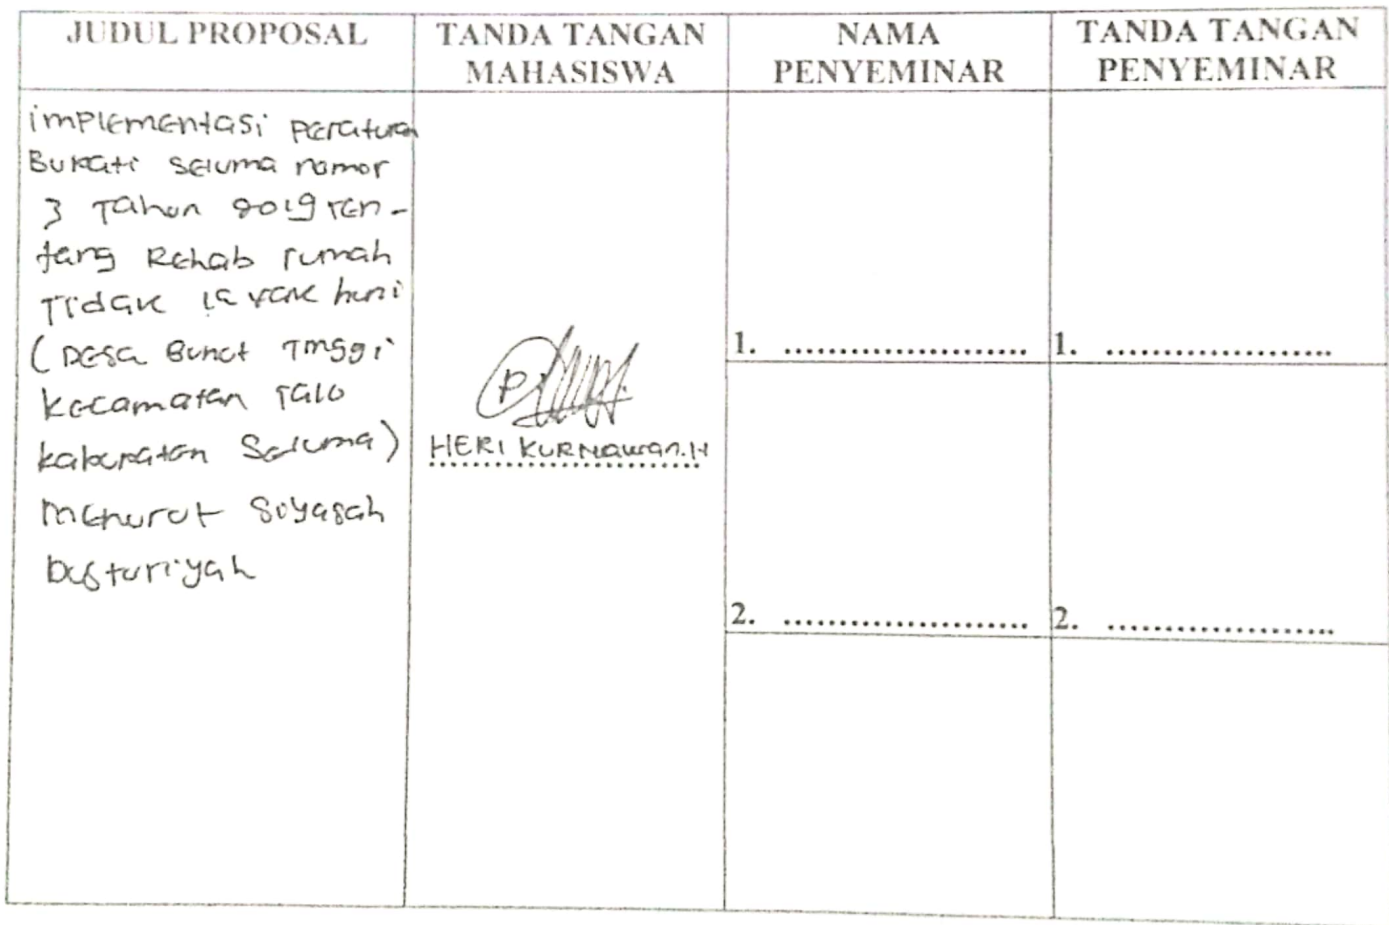 JUDUL PROPOSAL
TANDA TANGAN
MAHASISWA
NAMA
PENYEMINAR
TANDA TANGAN
PENYEMINAR
implementasi peraturan
Bupati Seluma nomor
3 Tahun 2019 Ten-
tang Rehab rumah
Tidak layak huni
(Desa Bunut Tinggi
kecamatan Talo
kabupaten Seluma)
menurut Siyasah
Dusturiyah
HERI KURNIawan.H
1. ........................
1. ........................
2. ........................
2. ........................